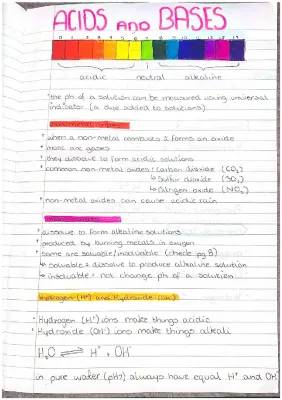 ACIDS AND BASES
0 1 2 3 4 5 6 7 8 9 10 11 12 13 14
acidic neutral alkaline
* the ph of a solution can be measured using universal
indicator (a dye added to solutions)
* when a non-metal combusts it forms an oxide
* most are gases
* they dissolve to form acidic solutions
* common non metal oxides: Carbon dioxide (CO₂)
↳ Sulfur dioxide (SO₂)
↳ Nitrogen oxide (NO₂)
* non-metal oxides can cause acidic rain
* dissolve to form alkaline solutions
* produced by burning metals in oxygen
* Some are soluable/insoluable (check pg 8)
↳ soluable = dissolve to produce alkaline solution
↳ insoluable = not change pH of a solution
Hydrogen (H⁺) and Hydroxide (OH⁻)
* Hydrogen (H⁺) ions make things acidic
* Hydroxide (OH⁻) ions make things alkali
H₂O ⇌ H⁺ + OH⁻
in pure water (pH7) always have equal H⁺ and OH⁻